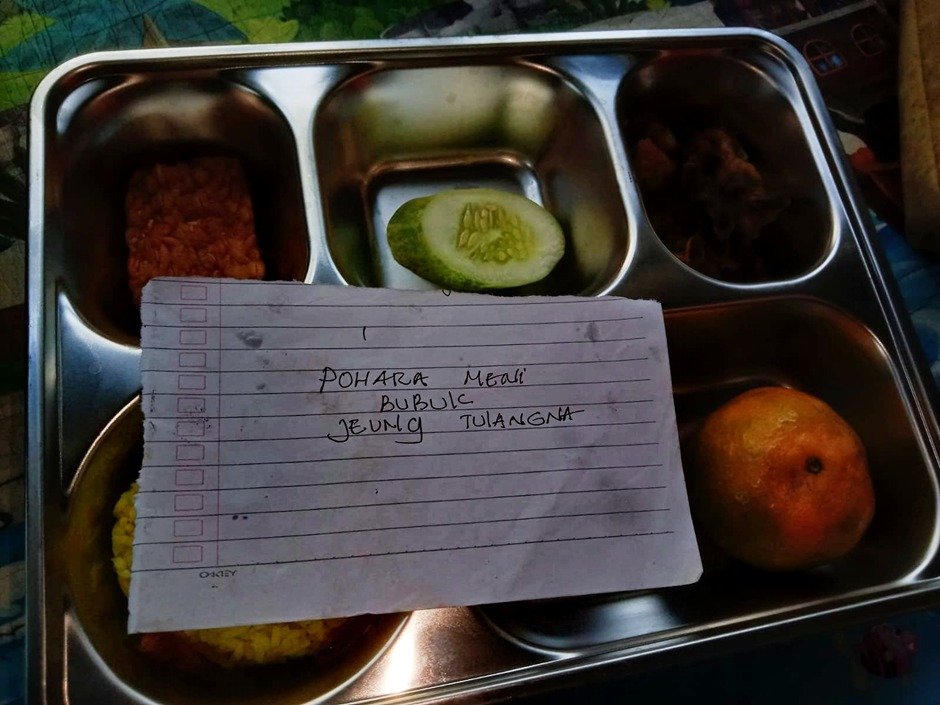 POHARA MENI
BUBUK
JEUNG TULANGNA
OAKLEY